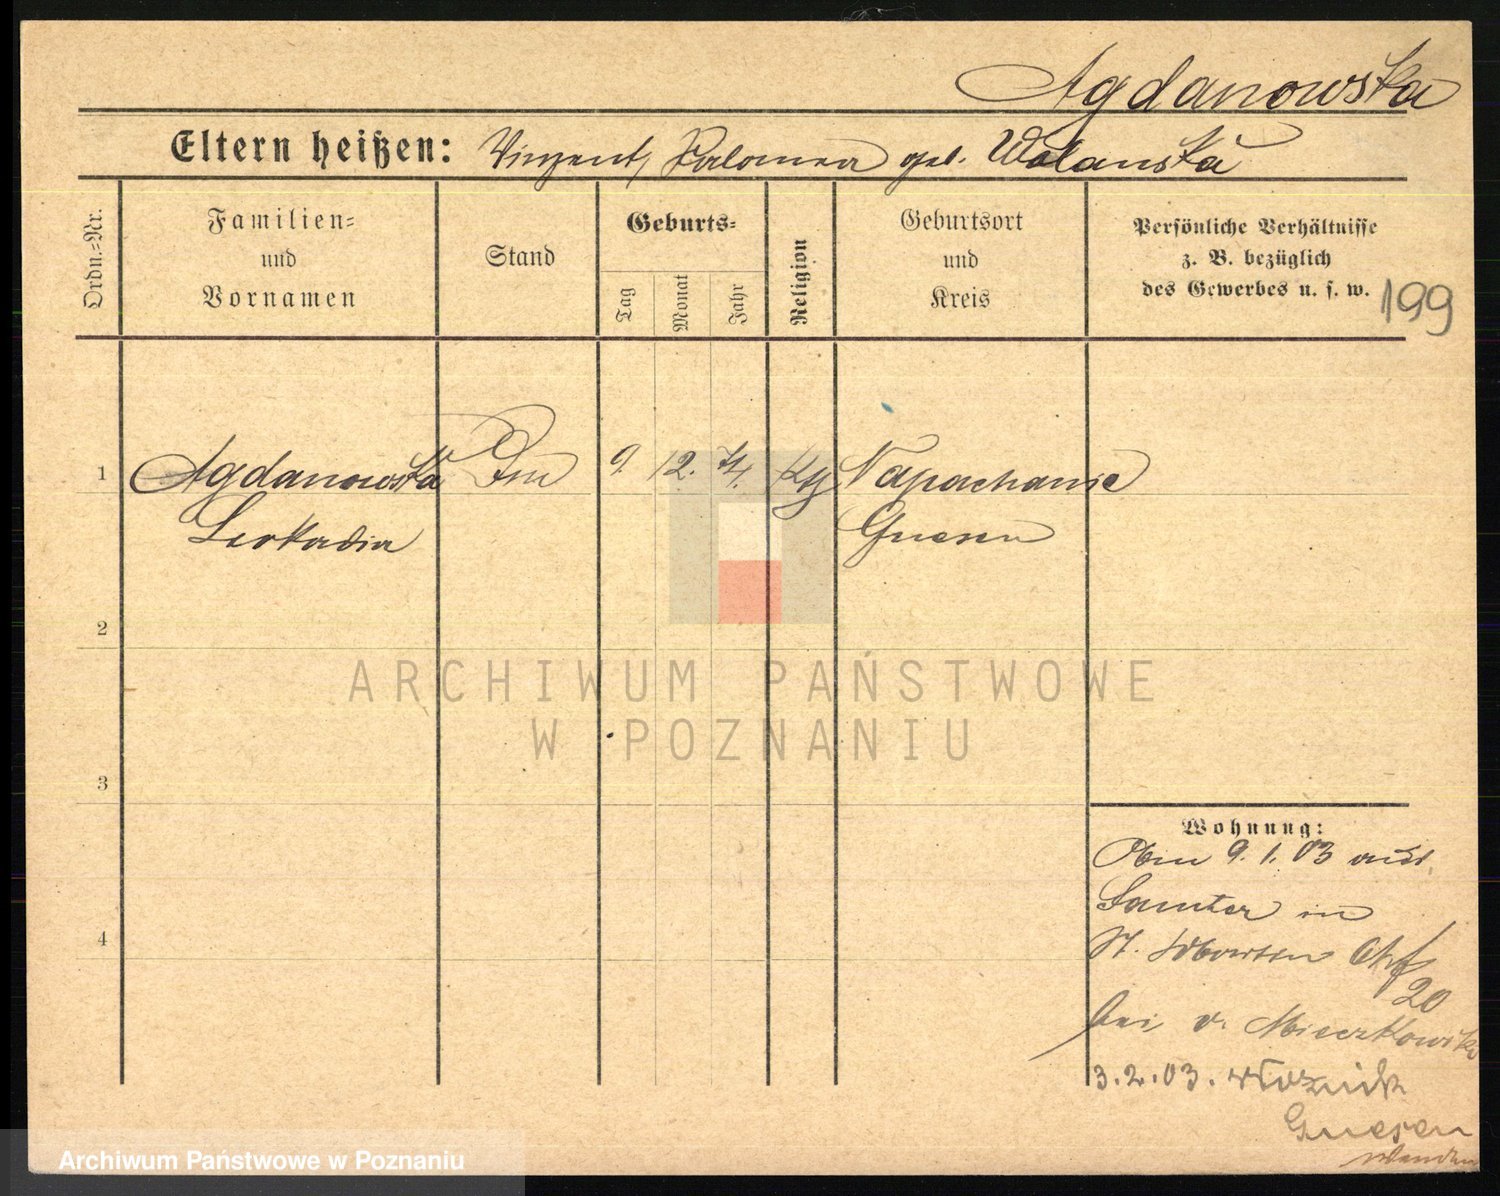 Agdanowska
Eltern heißen: Vinzent, Salomea geb. Wolanska
Ordn.-Nr.
Familien-
und
Vornamen
Stand
Geburts-
Tag
Monat
Jahr
Religion
Geburtsort
und
Kreis
Persönliche Verhältnisse
z. B. bezüglich
des Gewerbes u. s. w.
199
1 Agdanowska 9. 12. 74. Napachanie
Leokadia Gnesen
2
3
4
Wohnung:
9. 1. 03 aus
Samter in
20
bei v. Mieczkowski
3.2.03.
Gnesen
ARCHIWUM PAŃSTWOWE
W POZNANIU
Archiwum Państwowe w Poznaniu